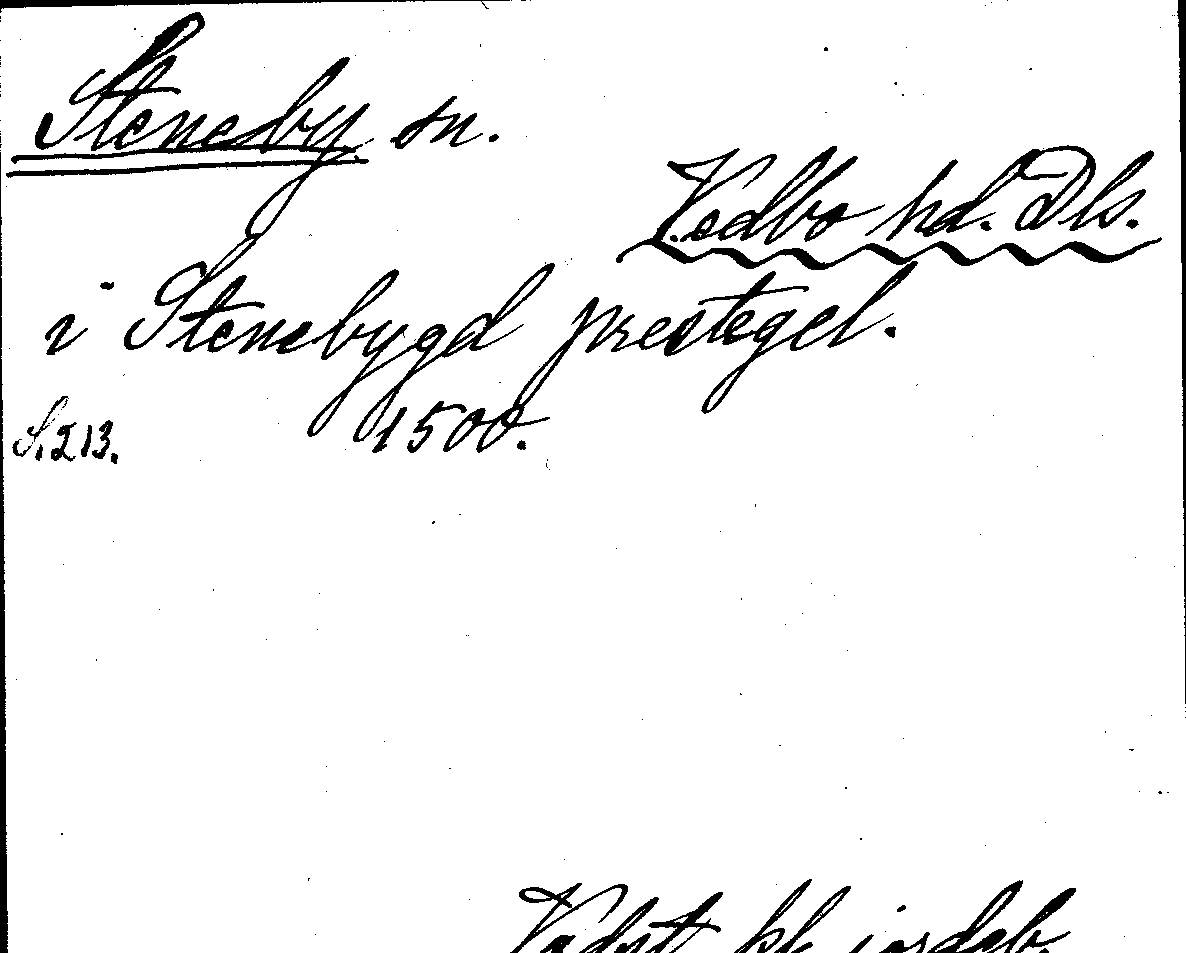 Steneby sn.
Vedbo hd. Dls.
i Stenebygd prestegel.
S. 213. 1500.
Vadst. kl. jordeb.